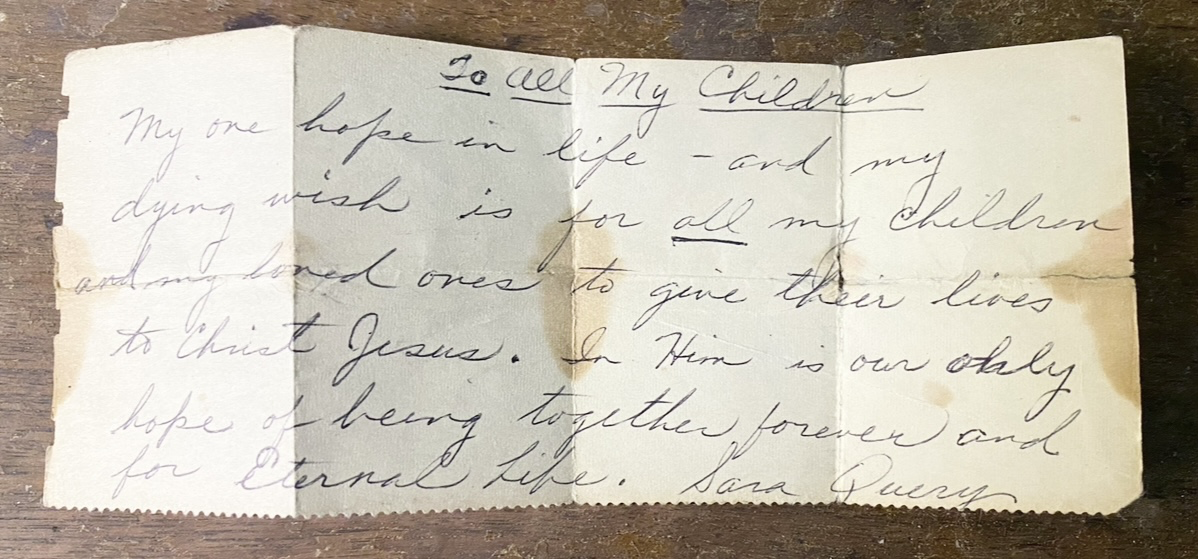 To All My Children
My one hope in life - and my
dying wish is for all my Children
and my loved ones to give their lives
to Christ Jesus. In Him is our only
hope of being together forever and
for Eternal Life. Sara Query